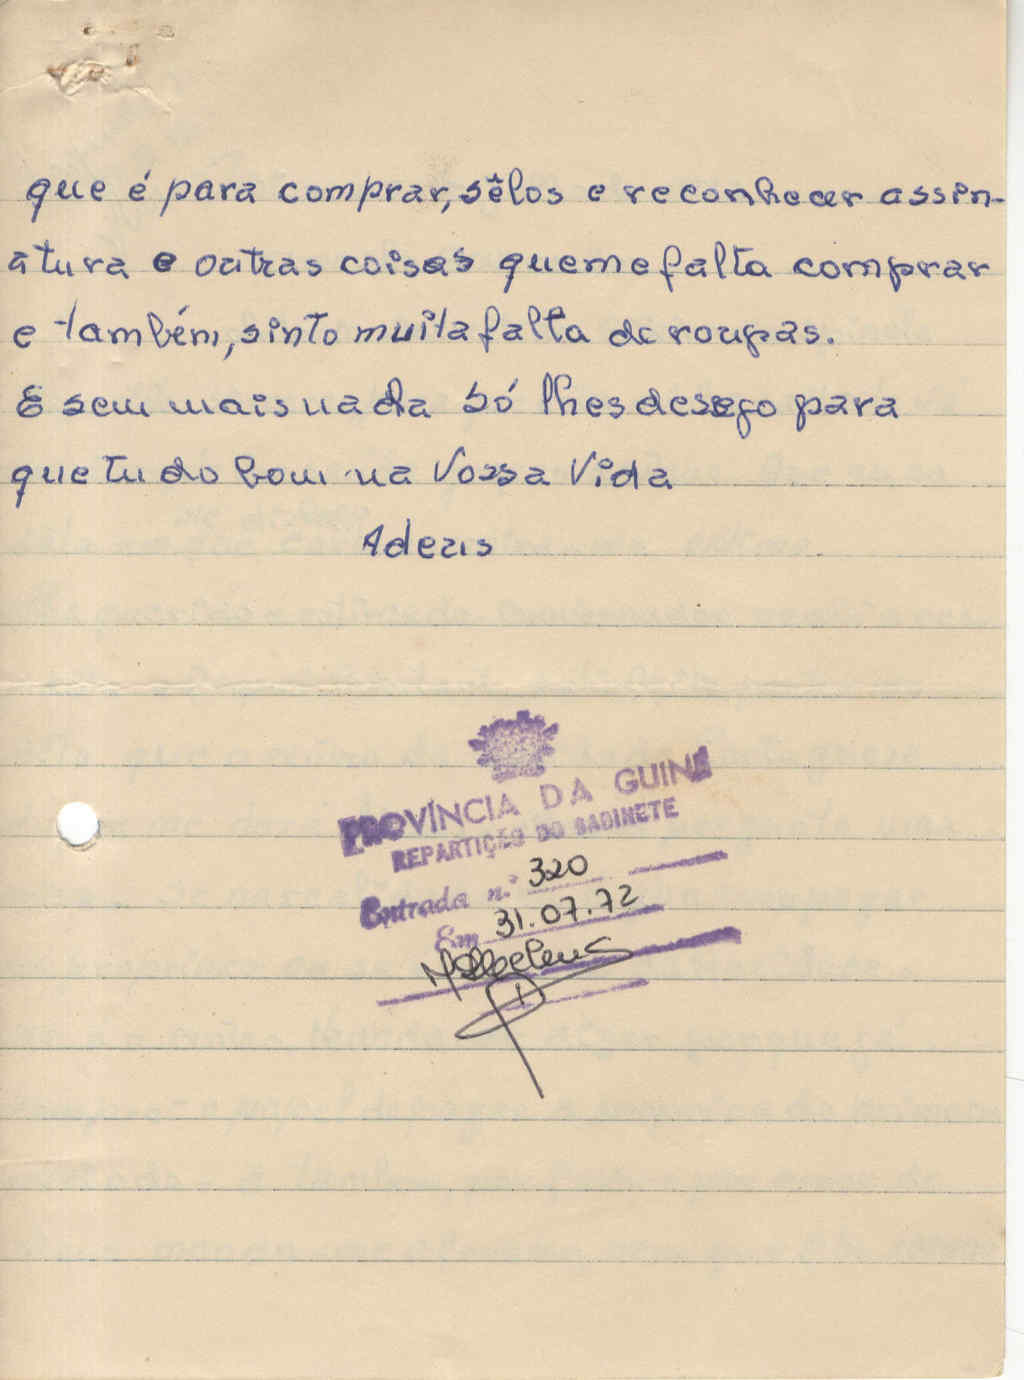 que é para comprar, sêlos e reconhecer assin-
atura e outras coisas que me falta comprar
e também, sinto muita falta de roupas.
E sem mais nada só lhes desejo para
que tudo bom na Vossa Vida
Adeus
PROVÍNCIA DA GUINÉ
REPARTIÇÃO DO GABINETE
Entrada n.º 320
Em 31.07.72